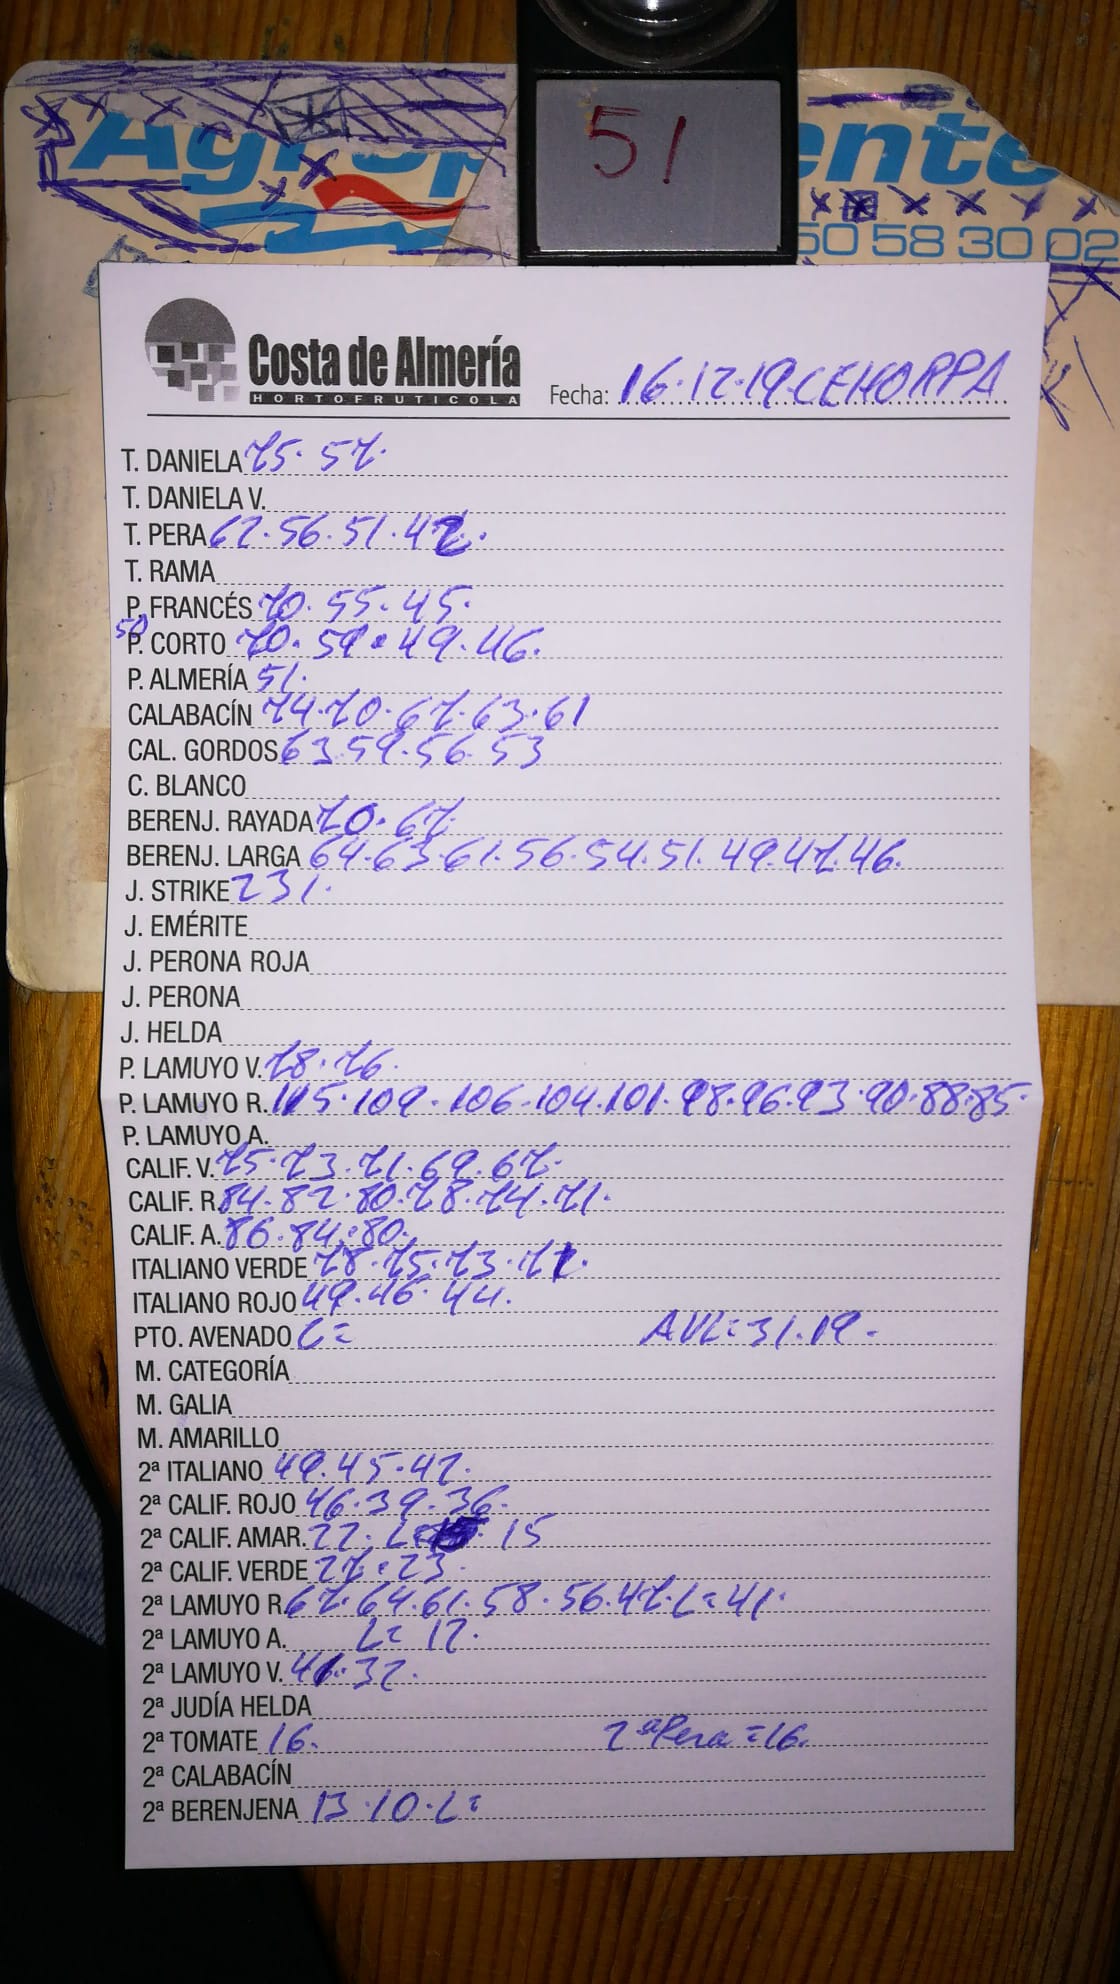 51
50 58 30 02
Costa de Almería
HORTOFRUTICOLA
Fecha: 16.12.19.CEHORPA
T. DANIELA 75. 57.
T. DANIELA V.
T. PERA 62.56.51.42.
T. RAMA
P. FRANCÉS 70. 55. 45.
50
P. CORTO 70. 59. 49. 46.
P. ALMERÍA 51.
CALABACÍN 74.70.67.63.61
CAL. GORDOS 63.59.56.53
C. BLANCO
BERENJ. RAYADA 70. 67.
BERENJ. LARGA 64.63.61.56.54.51.49.47.46.
J. STRIKE 231.
J. EMÉRITE
J. PERONA ROJA
J. PERONA
J. HELDA
P. LAMUYO V. 78. 76.
P. LAMUYO R. 115.109.106.104.101.98.96.93.90.88.85.
P. LAMUYO A.
CALIF. V. 75.73.71.69.67.
CALIF. R. 84.82.80.78.74.71.
CALIF. A. 86.84.80.
ITALIANO VERDE 78.75.73.71.
ITALIANO ROJO 49.46.44.
PTO. AVENADO L= AVL=31.19.
M. CATEGORÍA
M. GALIA
M. AMARILLO
2ª ITALIANO 49.45.42.
2ª CALIF. ROJO 46.39.36.
2ª CALIF. AMAR. 22. L= 15
2ª CALIF. VERDE 27.23.
2ª LAMUYO R. 67.64.61.58.56.47.L=41.
2ª LAMUYO A. L= 12.
2ª LAMUYO V. 41.32.
2ª JUDÍA HELDA
2ª TOMATE 16. 2ª Pera=16.
2ª CALABACÍN
2ª BERENJENA 13.10.L=